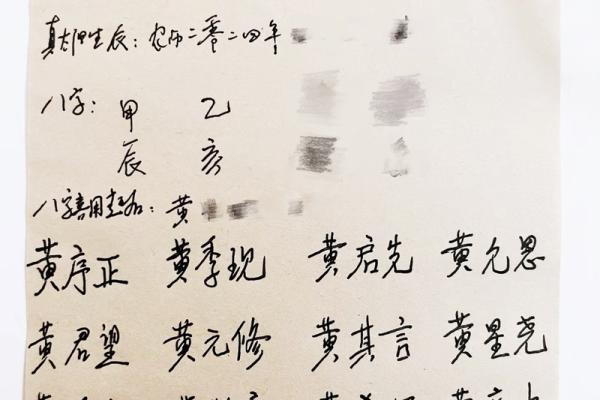 真太阳生辰：农历二零二四年
八字： 甲 乙
辰 亥
八字喜用起名：黄
黄序正 黄季现 黄启先 黄允恩
黄君望 黄元修 黄其言 黄星尧